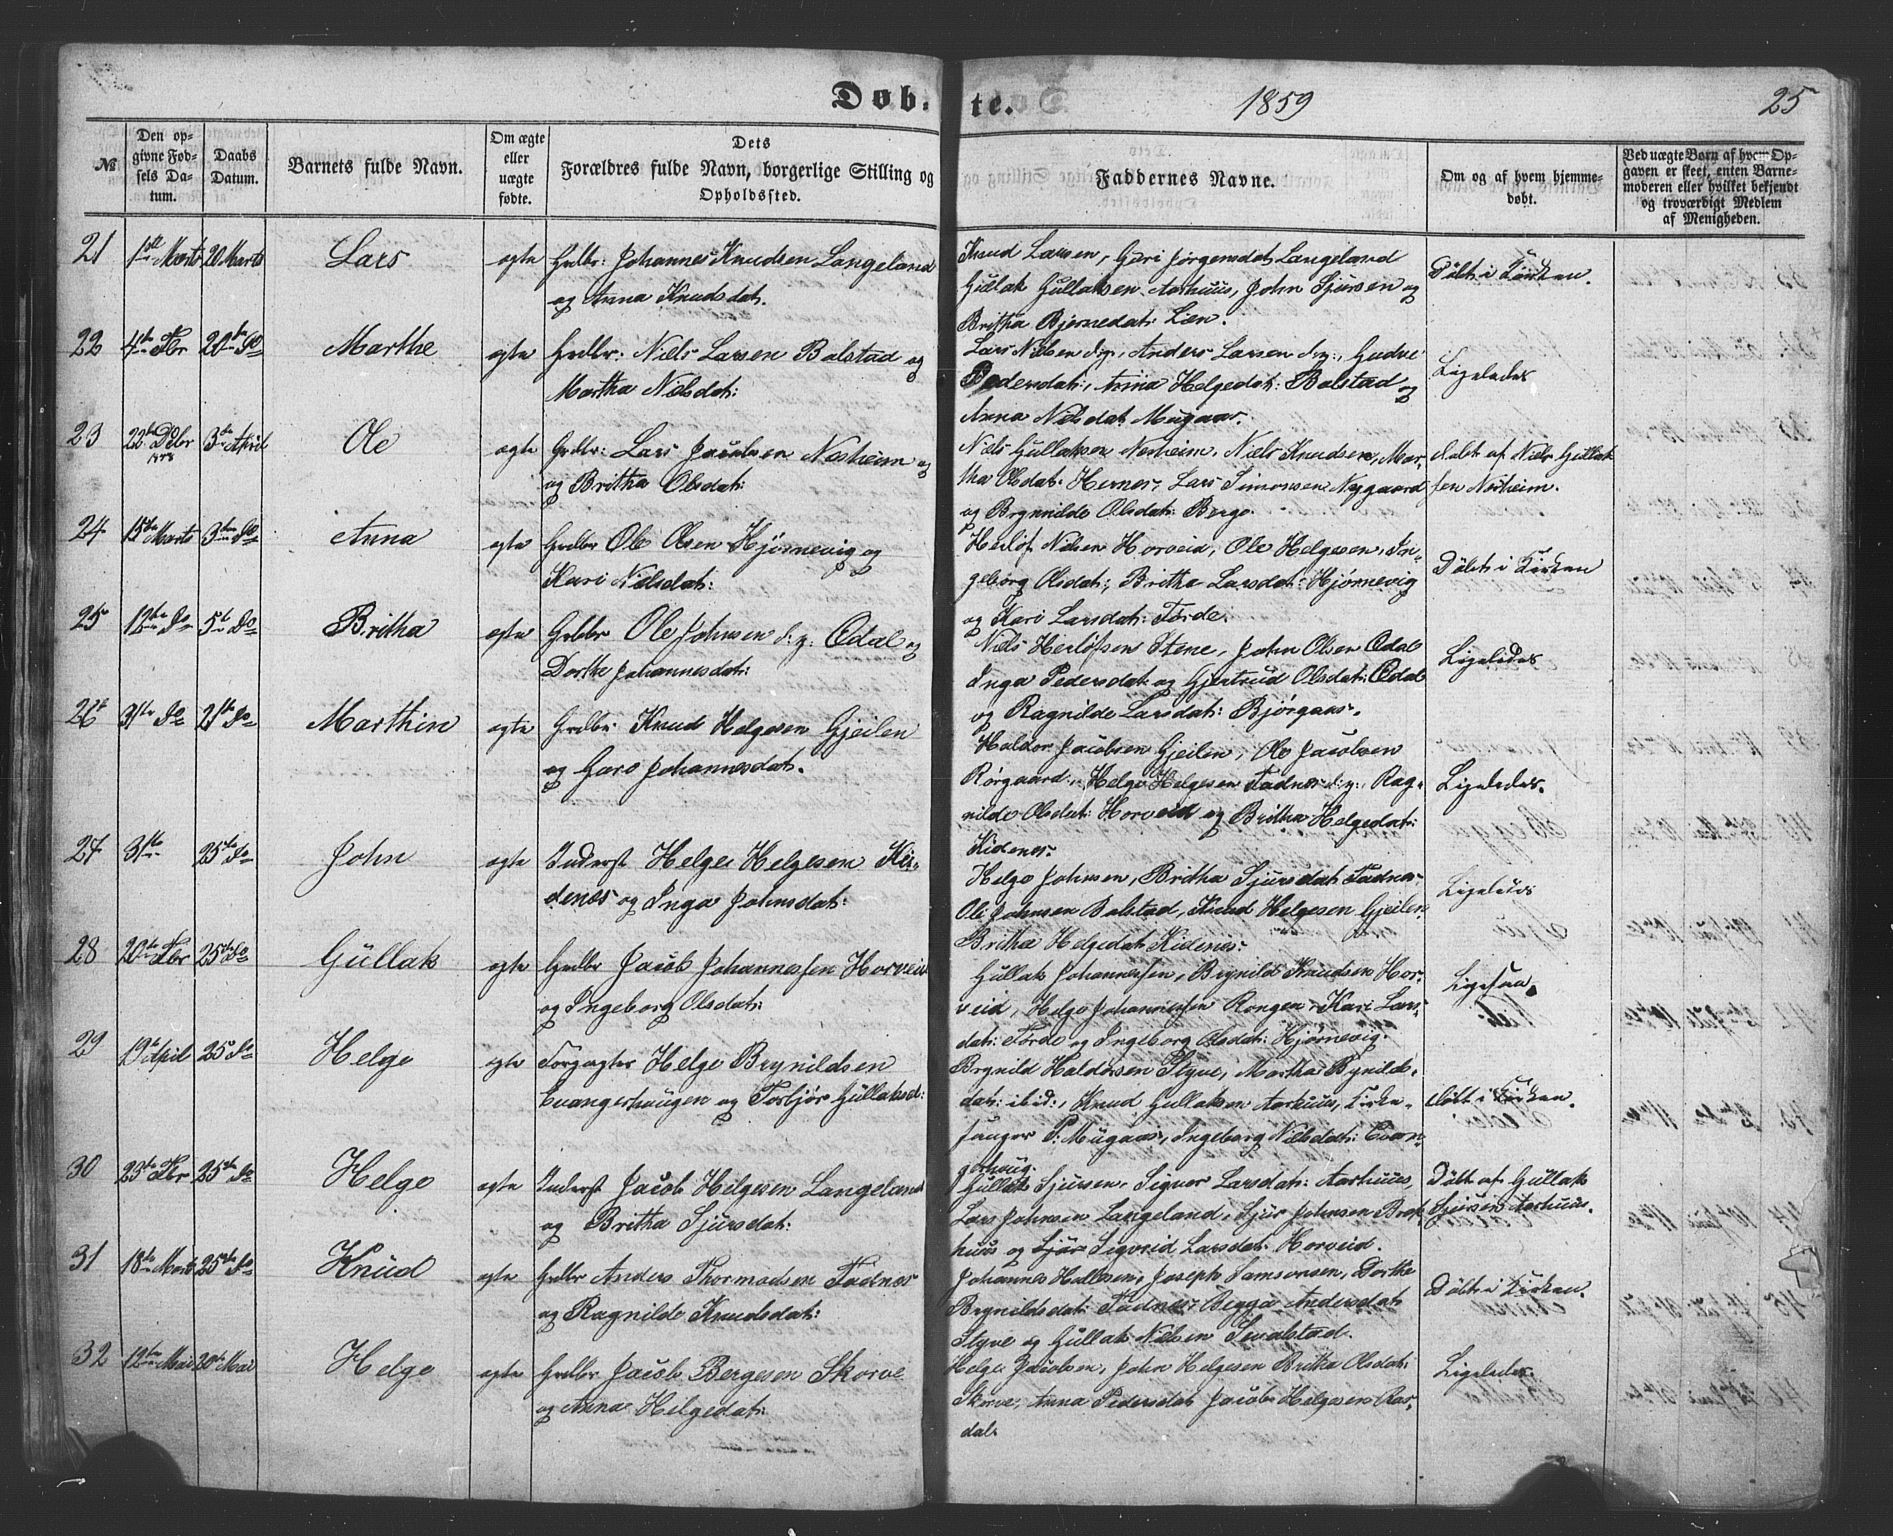 Døb. te. 1859 25
№ Den opgivne Fødsels Datum. Daabs Datum. Barnets fulde Navn. Om ægte eller uægte fødte. Dets Forældres fulde Navn, borgerlige Stilling og Opholdssted. Faddernes Navne. Om og af hvem hjemmedøbt. Ved uægte Barn af hvem Opgaven er skeet, enten Barnemoderen eller hvilket bekjendt og troværdigt Medlem af Menigheden.
21 1ste Marts 20 Marts Lars ægte Grdbr: Johannes Knudsen Langeland
og Anna Knudsdat.
Knud Larsen, Guri Jørgensdat Langeland
Gullak Gullaksen Aarhuus, John Sjursen og
Britha Bjørnedat: Læn.
Døbt i Kirken.
22 4de Fbr 20de Do Marthe ægte Grdbr: Niels Larsen Bolstad og
Martha Nielsdat:
Lars Nielsen d.y., Anders Larsen d.y., Gudve
Pedersdat:, Anna Helgedat: Bolstad og
Anna Nielsdat Mugaas.
Ligeledes
23 22de Dcbr 1858 3de April Ole ægte Grdbr: Lars Jacobsen Nesheim og
og Britha Olsdat:
Niels Gullaksen Nesheim, Niels Knudsen, Mar-
tha Olsdat: Hernes, Lars Simonsen Nygaard
og Brynnilde Olsdat: Berge.
døbt af Niels Gullak
sen Nesheim.
24 15de Marts 3de Do Anna ægte Grdbr Ole Olsen Hjørnevig og
Kari Nielsdat:
Herlof Nielsen Horveid, Ole Helgesen, In-
geborg Olsdat:, Britha Larsdat: Hjørnevig
og Kari Larsdat: Førde.
Døbt i Kirken
25 12te Do 5te Do Britha ægte Grdbr Ole Johnsen d:y: Ødal og
Dorthe Johannesdat:
Niels Herlofsen Stene, John Olsen Ødal
Inga Pedersdat: og Gjertrud Olsdat: Ødal
og Ragnilde Larsdat: Bjørgaas.
Ligeledes
26 31te Do 21de Do Marthin ægte Grdbr: Knud Helgesen Gjeilen
og Guro Johannesdat.
Haldor Jacobsen Gjeilen, Ole Jacobsen
Rørgaard, Helge Helgesen Fadnes d:y:, Rag-
nilde Olsdat: Horveid og Britha Helgedat:
Kidenes.
Ligeledes.
27 31te 25de Do John ægte Inderst Helge Helgesen Ki-
denes og Inga Johnsdat:
Helge Johnsen, Britha Sjursdat Fadnes,
Ole Johnsen Bolstad, Knud Helgesen Gjeilen
Britha Helgedat Kidenes.
Ligeledes
28 20de Fbr 25de Do Gullak ægte Grdbr Jacob Johannessen Horveid
og Ingeborg Olsdat:
Gullak Johannessen, Brynild Knudsen Hor-
veid, Helge Johannessen Rongen, Kari Lars-
dat: Førde og Ingeborg Olsdat: Hjørnevig.
Ligesaa.
29 19de April 25 Do Helge ægte Helge Brynildsen
Evangerhaugen og Torbjør Gullaksd:
Brynild Haldorsen Styve, Martha Bynilds-
dat: ibid:, Knud Gullaksen Aarhuus, Kirke-
sanger P: Mugaas, Ingeborg Nielsdat: Evan-
gerhaug.
døbt i Kirken.
30 23de Fbr 25de Do Helge ægte Inderst Jacob Helgesen Langeland
og Britha Sjursdat:
Gullak Sjursen, Signer Larsdat: Aarhuus,
Lars Johnsen Langeland, Sjur Johnsen Brek
huus og Sigvrid Larsdat: Horveid.
Døbt af Gullak
Sjursen Aarhuus.
31 18de Marts 25de Do Knud ægte Grdbr Anders Thormodsen Fadnes
og Ragnilde Knudsdat:
Johannes Hallesen, Joseph Samsonsen, Dorthe
Brynildsdat: Fadnes, Begga Andersdat
Styve og Gullak Nielsen Sevalstad.
Døbt i Kirken.
32 12te Mai 20de Mai Helge ægte Grdbr Jacob Bergesen Skorve
og Anna Helgedat:
Helge Jacobsen, John Helgesen Britha Olsdat:
Skorve, Anna Pedersdat Jacob Helgesen Ros-
dal.
Ligeledes.